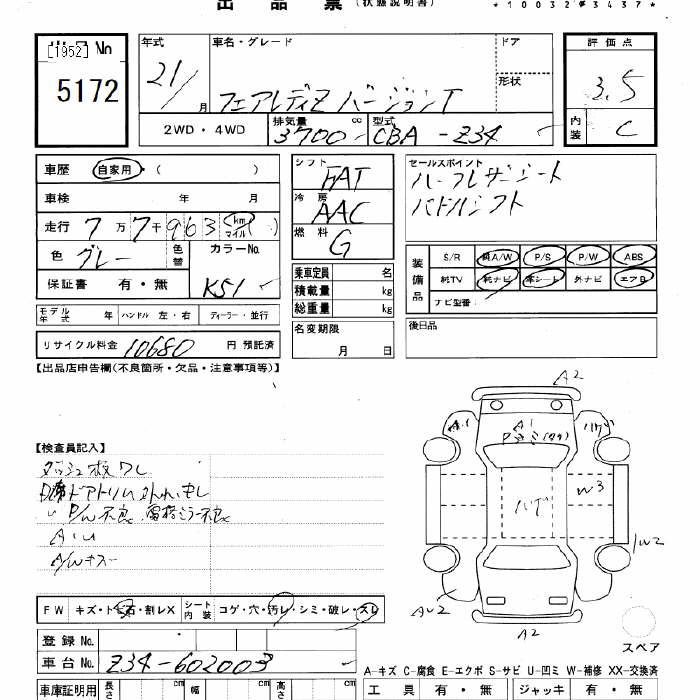 出品票(状態説明書)
*10032*3437*
[1952] No
5172
年式
21/
月
車名・グレード
フェアレディZ バージョンT
ドア
形状
2WD・4WD
排気量 cc
3700
型式
CBA-Z34
評価点
3.5
内装
C
車歴 自家用・( )
車検 年 月
走行 7万7千963 km マイル ( )
色 グレー
色替
カラーNo.
K51
保証書 有・無
シフト FAT
冷房 AAC
燃料 G
乗車定員 名
積載量 kg
総重量 kg
名変期限
月 日
セールスポイント
ハーフレザーシート
パドルシフト
装備品
S/R 純A/W P/S P/W ABS
純TV 純ナビ 革シート 外ナビ エアB
ナビ型番
後日品
モデル年式 年 ハンドル 左・右 ディーラー・並行
リサイクル料金 10680 円 預託済
【出品店申告欄(不良箇所・欠品・注意事項等)】
【検査員記入】
P/W不良
A・U
A/Wキズ
FW キズ・トビ石・割レX シート内装 コゲ・穴・汚レ・シミ・破レ・スレ
登録No.
車台No. Z34-602003
車庫証明用 長さ cm 幅 cm 高さ cm
A2
A1
A1
ハゲ
W3
1W2
AU2
A2
スペア
A-キズ C-腐食 E-エクボ S-サビ U-凹ミ W-補修 XX-交換済
工具 有・無 ジャッキ 有・無